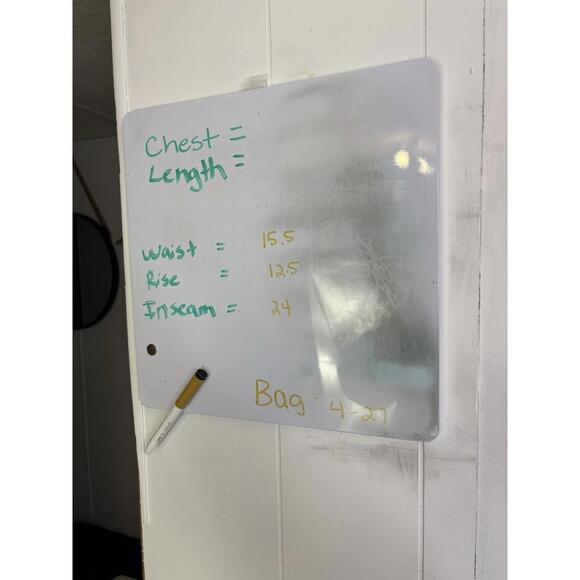 Chest =
Length =
Waist = 15.5
Rise = 12.5
Inseam = 24
Bag 4-27